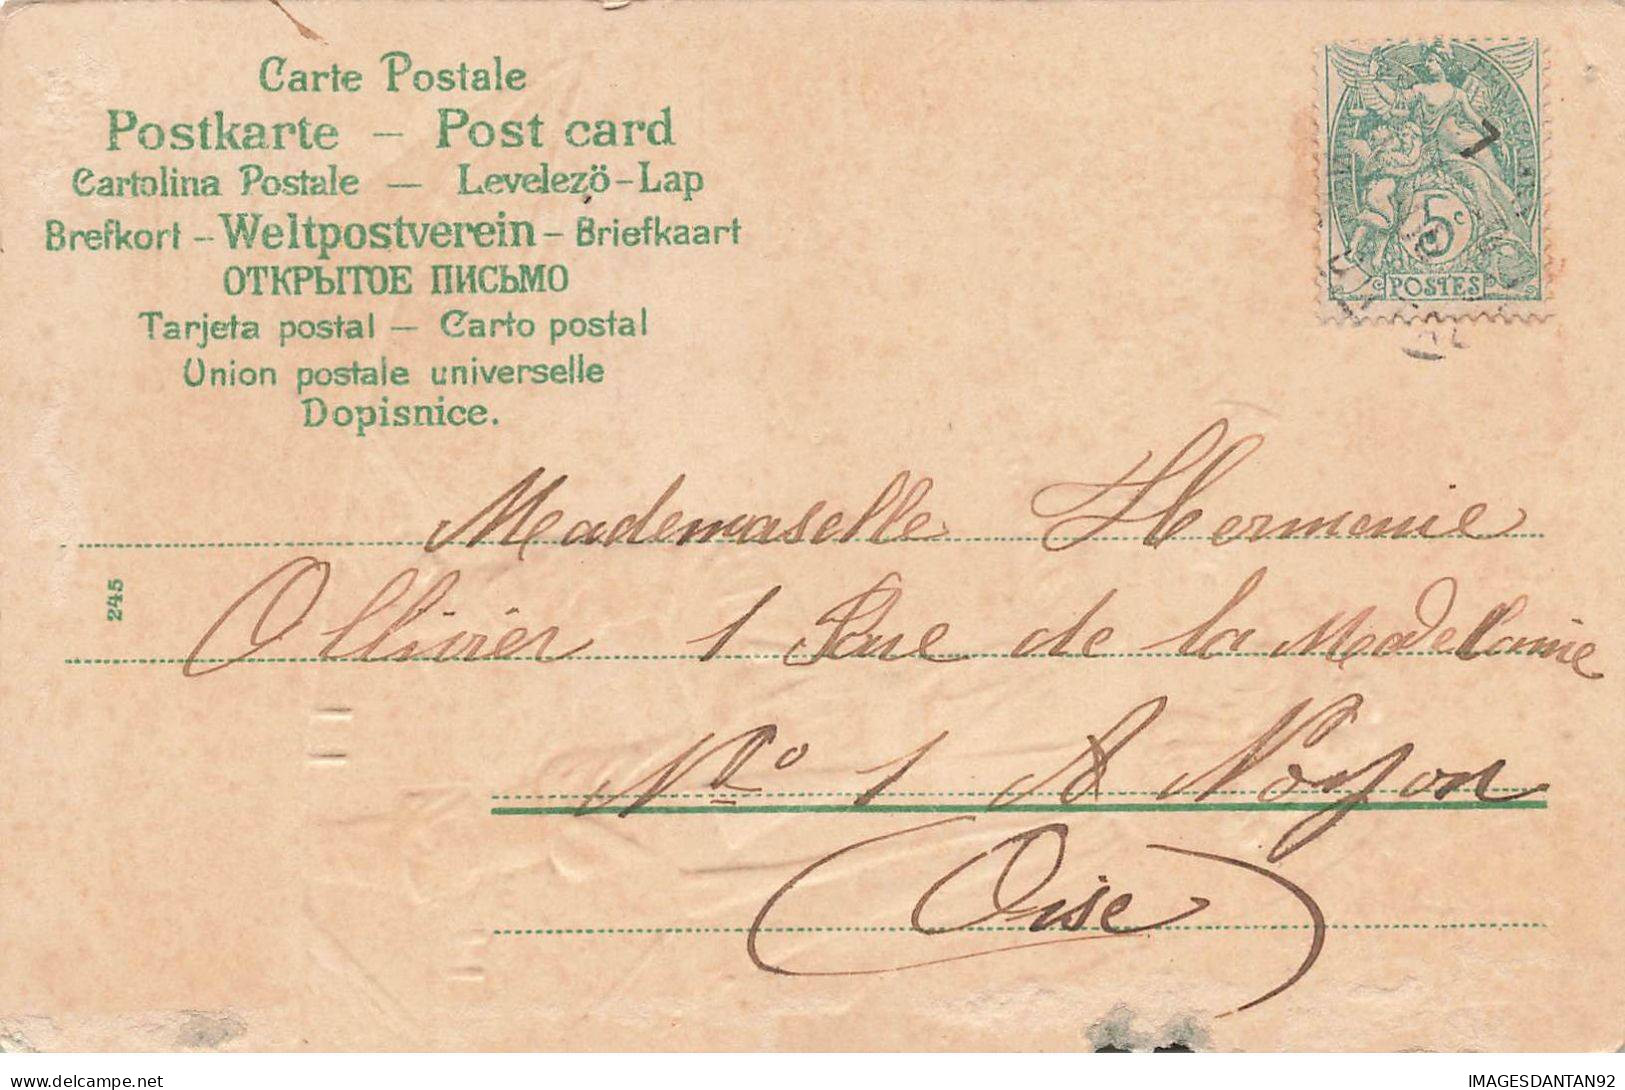 Carte Postale
Postkarte – Post card
Cartolina Postale — Levelező-Lap
Brefkort – Weltpostverein – Briefkaart
ОТКРЫТОЕ ПИСЬМО
Tarjeta postal — Carto postal
Union postale universelle
Dopisnice.
7
5c
POSTES
Mademoiselle Hermenie
245
Ollivier 1 Rue de la Madelaine
No 1 A Noyon
(Oise)
delcampe.net
IMAGESDANTAN92